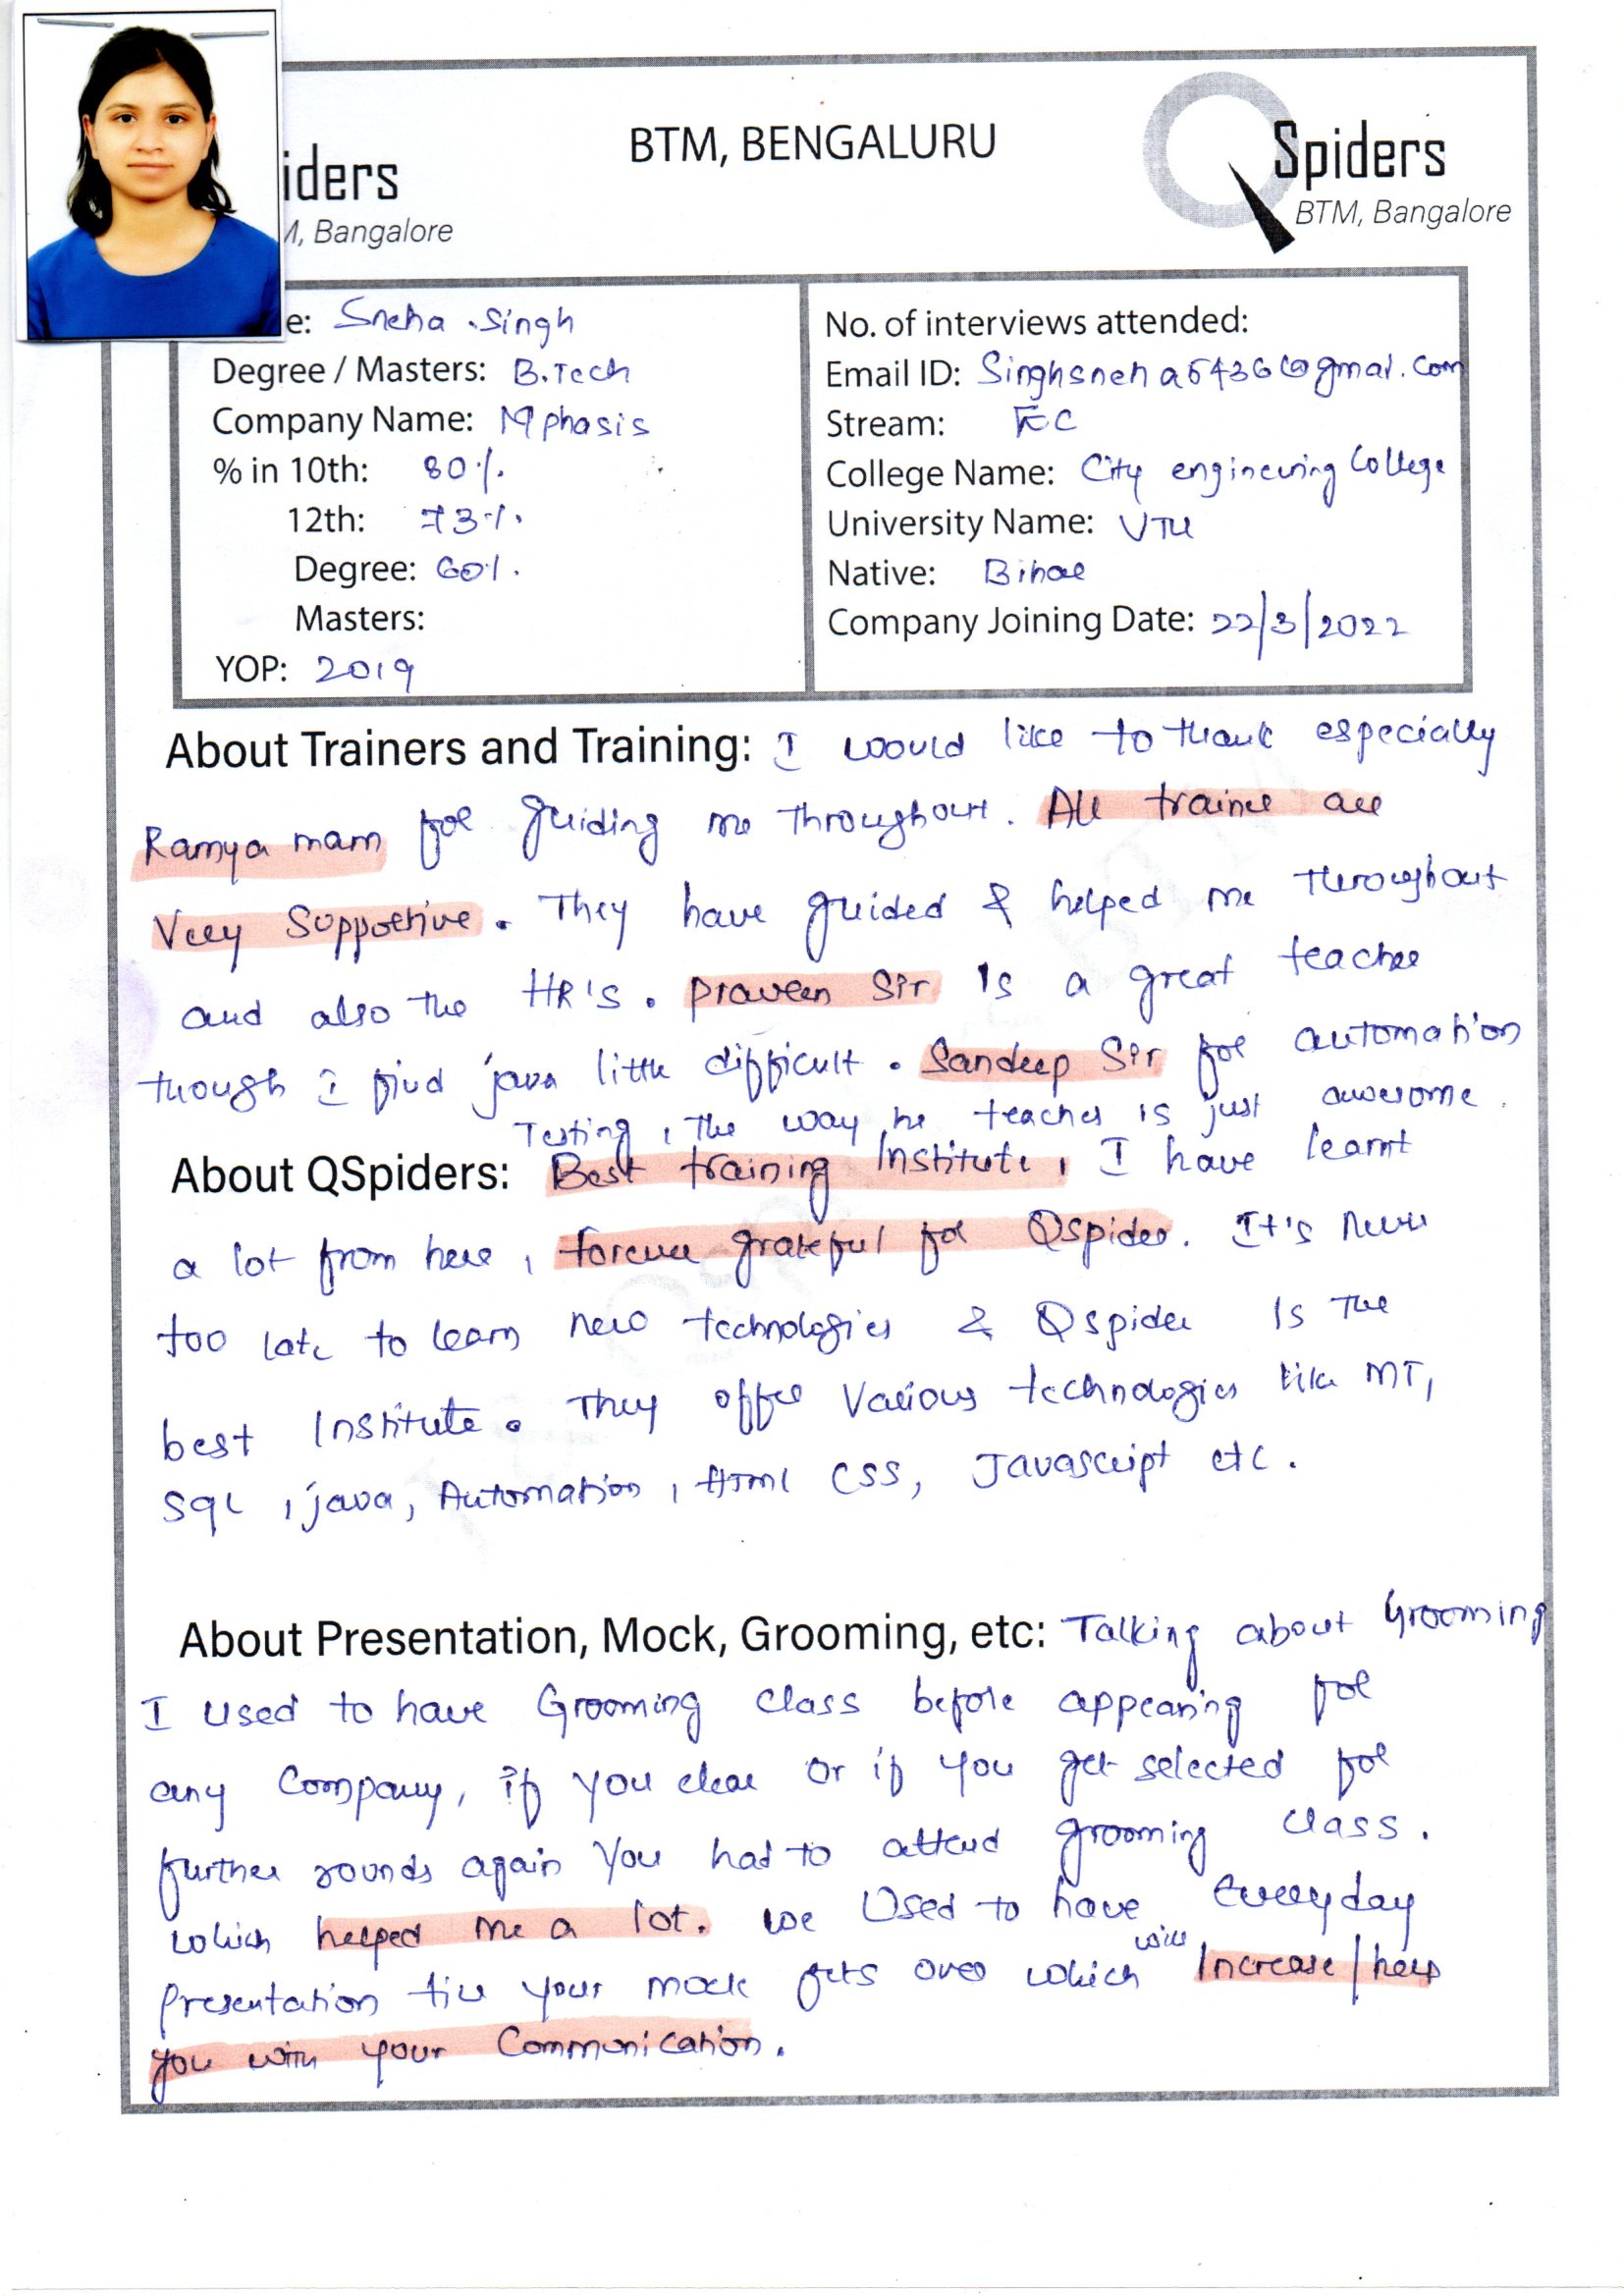 iders
M, Bangalore
BTM, BENGALURU
Spiders
BTM, Bangalore
e: Sneha .Singh
Degree / Masters: B.Tech
Company Name: Mphasis
% in 10th: 80%.
12th: 73%.
Degree: 60%.
Masters:
YOP: 2019
No. of interviews attended:
Email ID: @gmai.com
Stream: EC
College Name: City engineering College
University Name: VTU
Native: Bihar
Company Joining Date: 22/3/2022
About Trainers and Training: I would like to thank especially
Ramya mam for guiding me throughout. All trainer are
Very Supportive. They have guided & helped me throughout
and also the HR's. Praveen Sir is a great teacher
though I find java little difficult. Sandeep Sir for automation
Testing, the way he teaches is just awesome.
About QSpiders: Best training Institute, I have learnt
a lot from here, forever grateful for Qspider. It's never
too late to learn new technologies & Qspider is the
best Institute. They offer Various technologies like MT,
SQL, java, Automation, Html CSS, Javascript etc.
About Presentation, Mock, Grooming, etc: Talking about Grooming
I used to have Grooming class before appearing for
any Company, if you clear or if you get selected for
further rounds again you had to attend grooming class.
which helped me a lot. we Used to have everyday
presentation till your mock gets over which will Increase/help
you with your Communication.